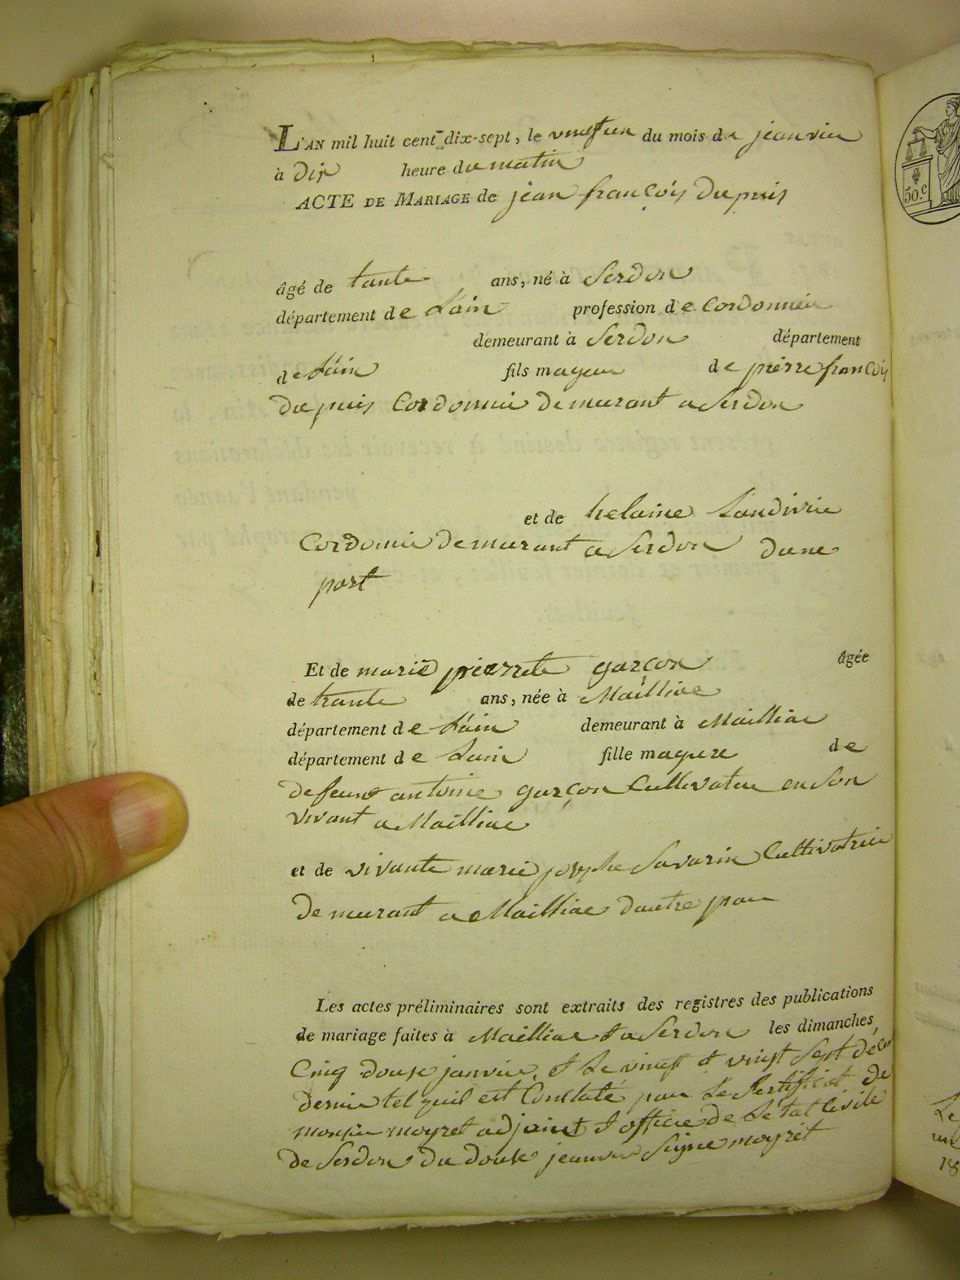 L'AN mil huit cent dix-sept, le vingt un du mois de jeanvier
à Dix heure du matin
ACTE DE MARIAGE de jean françois Dupuis
âgé de tante ans, né à Serdon
département de Lain profession de Cordonnier
demeurant à Serdon département
de Lain fils mageur de pierre françois
Dupuis Cordonnier Demurant a Serdon
et de helaine
Cordonnier Demurant a Serdon dune
part
Et de marie pierrete garçon âgée
de trante ans, née à Mailliac
département de Lain demeurant à Mailliac
département de Lain fille mageure de
defeunt antoine garçon Cultivateur en Son
vivant a Mailliac
et de vivante marie josephe Savarin Cultivatrice
Demurant a Mailliac dautre part
Les actes préliminaires sont extraits des registres des publications
de mariage faites à Mailliac et a Serdon les dimanches
Cinq douse janvier, et Le vingt et vingt Sept déce
dernier tel quil est Constaté par Le Sertificat de
monsieur moyret adjoint et officie de Le tat Civile
de Serdon du douse jeanvier Signe moyret
50.c
18